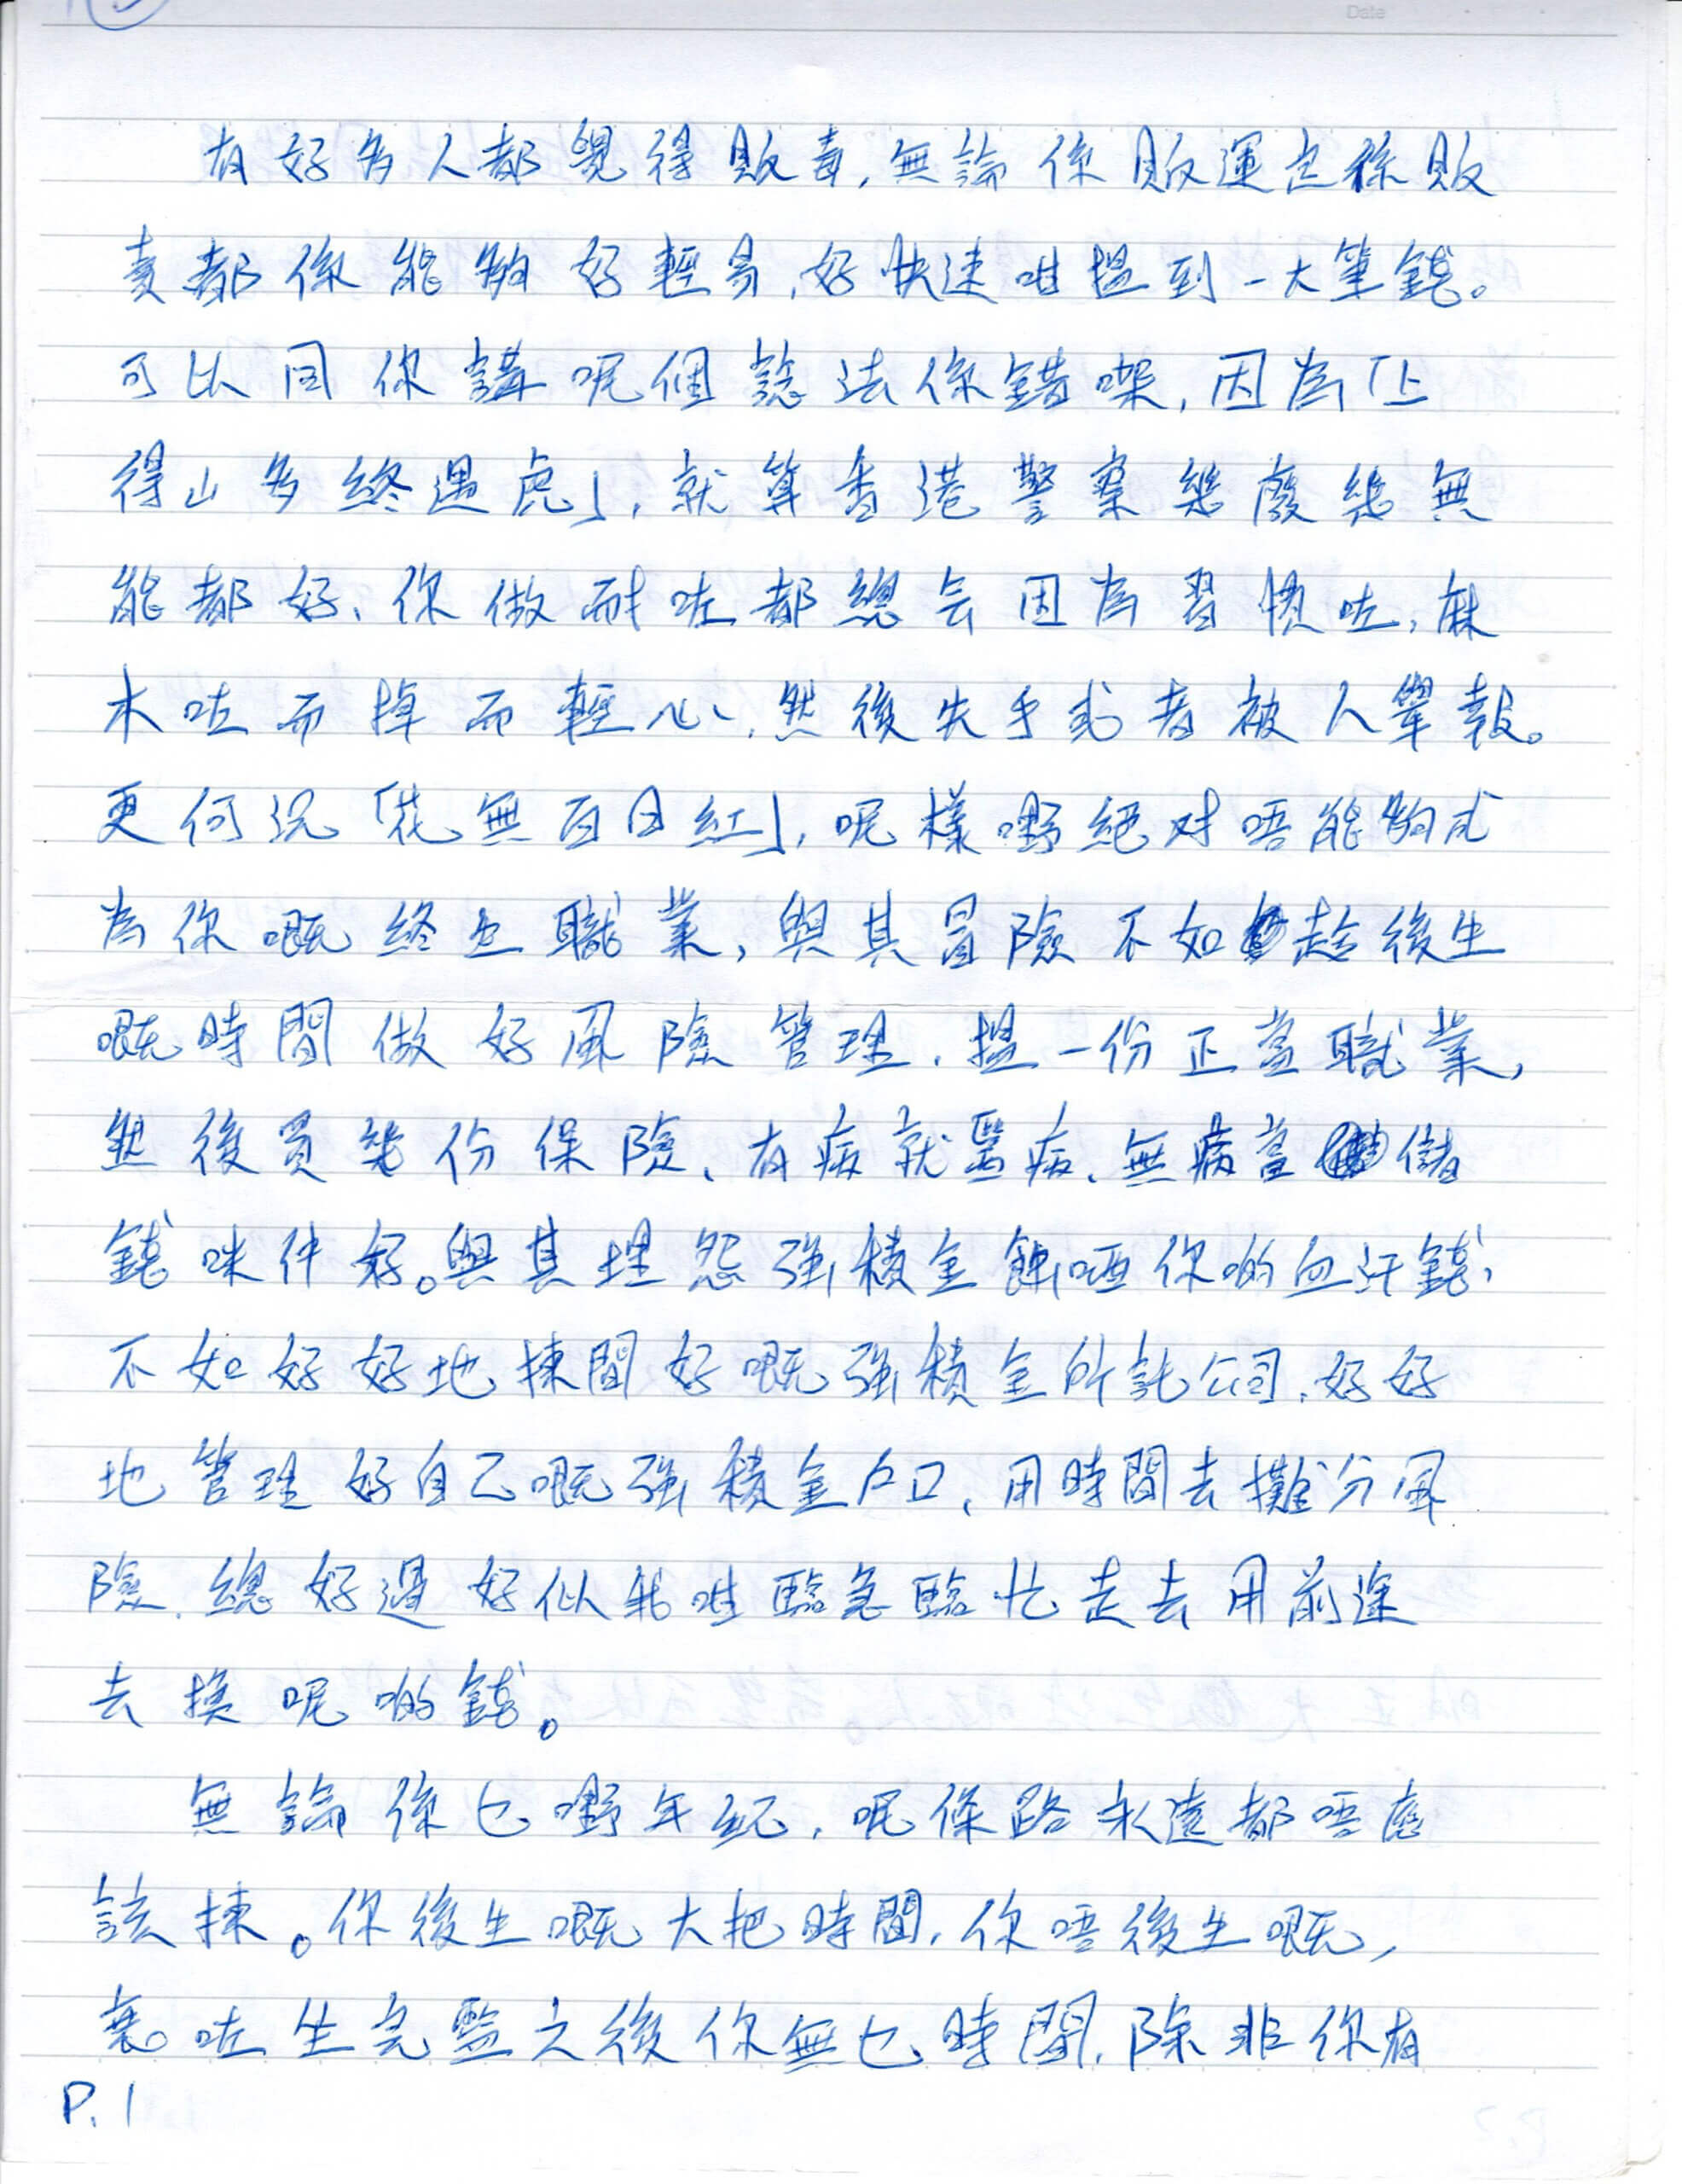 Date
有好多人都覺得販毒,無論係販運定係販
賣都係能夠好輕易,好快速咁搵到一大筆錢。
可以同你講呢個諗法係錯㗎,因為「上
得山多終遇虎」,就算香港警察幾廢幾無
能都好,你做耐咗都總会因為習慣咗,麻
木咗而掉而輕心,然後失手或者被人舉報。
更何況「花無百日紅」,呢樣嘢絕对唔能夠成
為你嘅終生職業,與其冒險不如趁後生
嘅時間做好風險管理,搵一份正當職業,
然後買幾份保險,有病就醫病,無病當儲
錢咪仲好。與其埋怨強積金蝕哂你啲血汗錢,
不如好好地揀間好嘅強積金所託公司,好好
地管理好自己嘅強積金戶口,用時間去攤分風
險,總好過好似我咁臨急臨忙走去用前途
去換呢啲錢。
無論係乜嘢年紀,呢條路永遠都唔應
該揀。你後生嘅大把時間,你唔後生嘅,
衰咗坐完監之後你無乜時間,除非你有
P.1